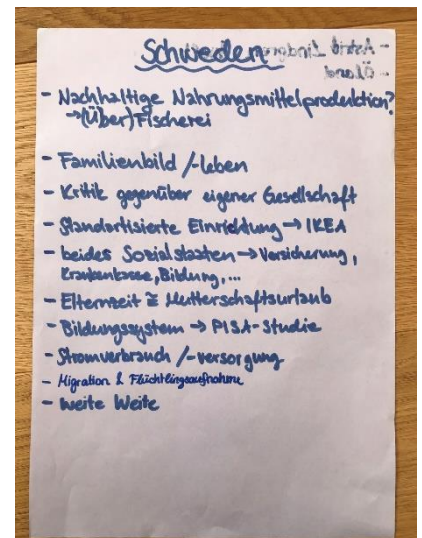 Schweden
- Nachhaltige Nahrungsmittelproduktion?
→ (Über)Fischerei
- Familienbild /-leben
- Kritik gegenüber eigener Gesellschaft
- Standartisierte Einrichtung → IKEA
- beides Sozialstaaten → Versicherung,
Krankenkasse, Bildung, ...
- Elternzeit ≅ Mutterschaftsurlaub
- Bildungssystem → PISA-Studie
- Stromverbrauch /-versorgung
- Migration & Flüchtlingsaufnahme
- weite Weite
- Astrid Lindgren
- Öland